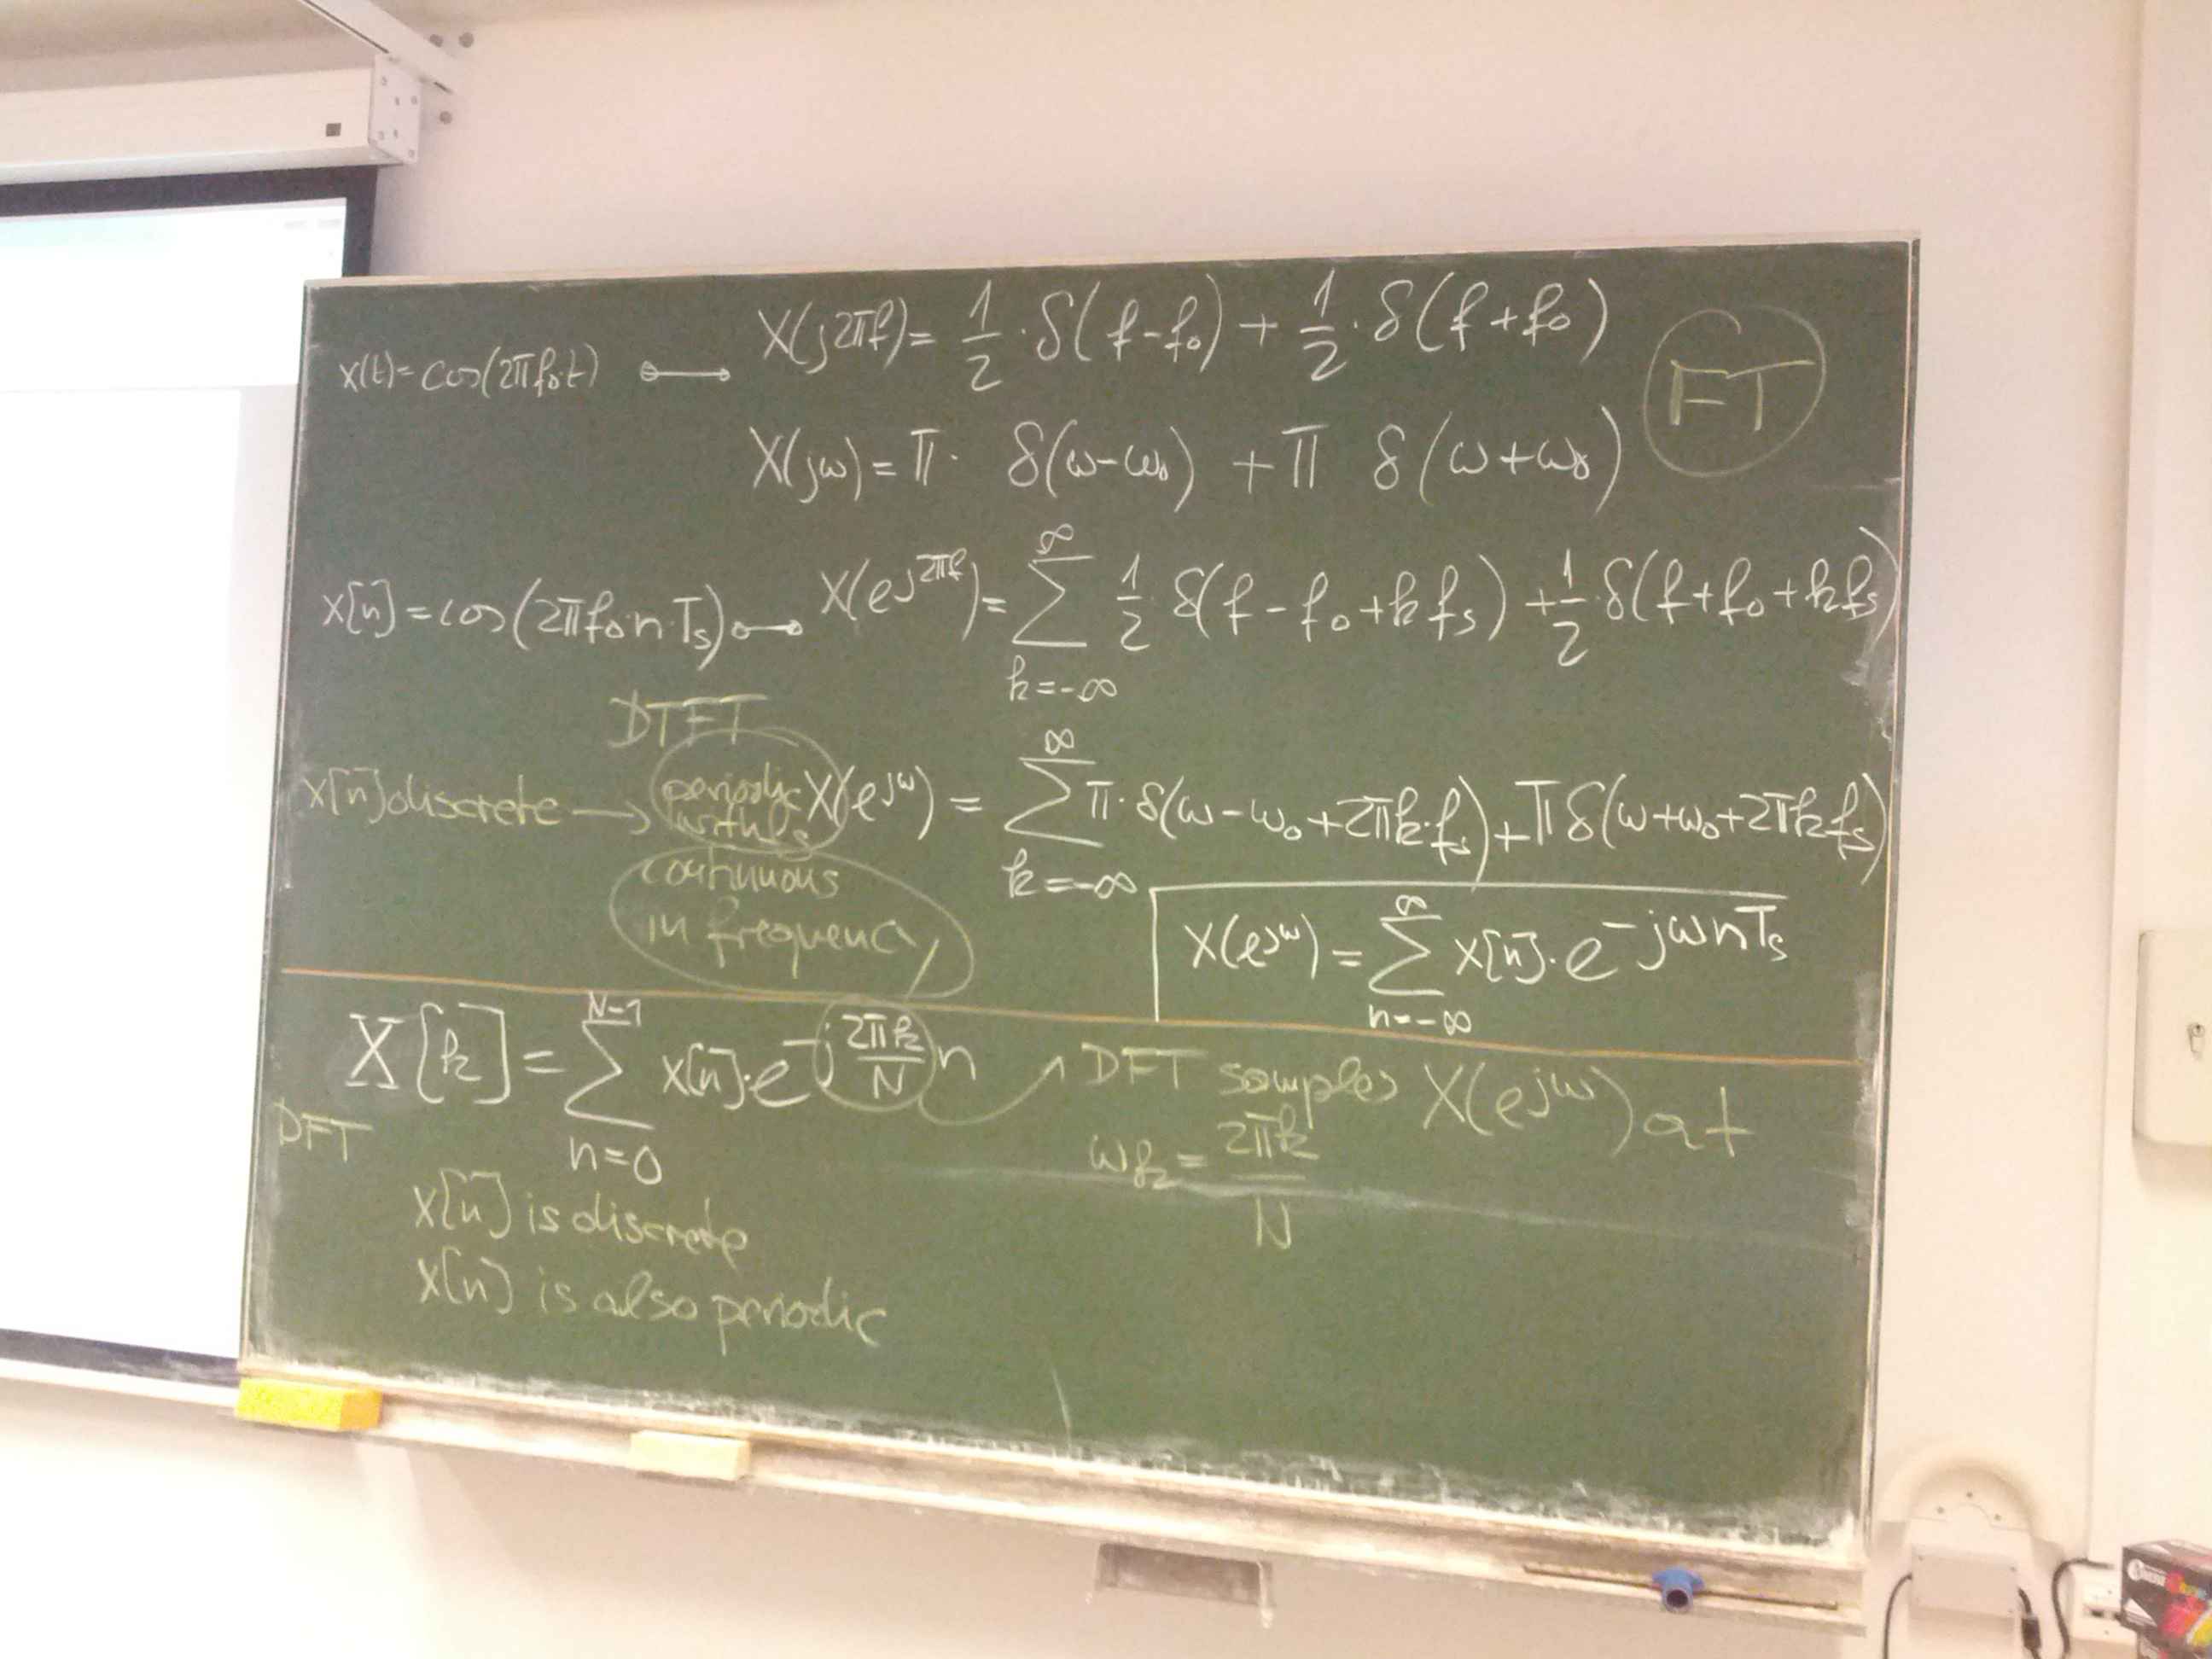 x(t)=cos(2πf₀·t) ○—○ X(j2πf)= 1/2 · δ(f-f₀) + 1/2 · δ(f+f₀)
FT
X(jω)=π· δ(ω-ω₀) +π δ(ω+ω₀)
x[n]=cos(2πf₀·n·Tₛ) ○—○ X(e^{j2πf})= ∑_{k=-∞}^{∞} 1/2 · δ(f-f₀+kfₛ) + 1/2 · δ(f+f₀+kfₛ)
DTFT
x[n] discrete → periodic with fₛ
X(e^{jω}) = ∑_{k=-∞}^{∞} π·δ(ω-ω₀+2πk·fₛ)+πδ(ω+ω₀+2πkfₛ)
continuous
in frequency
X(e^{jω}) = ∑_{n=-∞}^{∞} x[n]·e^{-jωnTₛ}
X[k] = ∑_{n=0}^{N-1} x[n]·e^{-j(2πk/N)n}
DFT samples X(e^{jω}) at
ωₖ= 2πk/N
DFT
x[n] is discrete
x[n] is also periodic